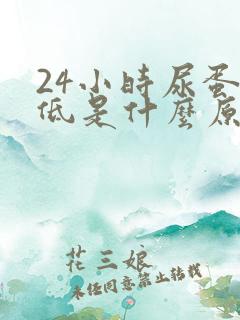 24小時尿蛋
低是什麼原
花三娘
未经同意禁止转载